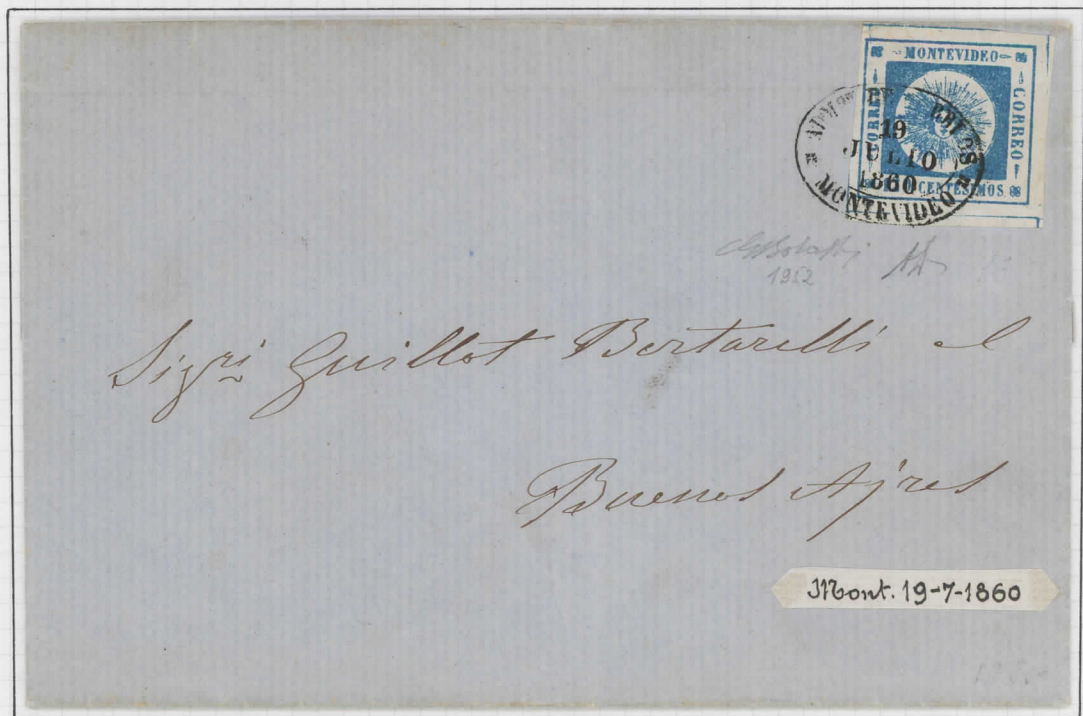 MONTEVIDEO
CORREO
CORREO
CENTESIMOS.
ADMon DE
19
JULIO
1860
MONTEVIDEO
1952
Sigri Guillot Bertarelli e
Buenos Ajres
Mont. 19-7-1860